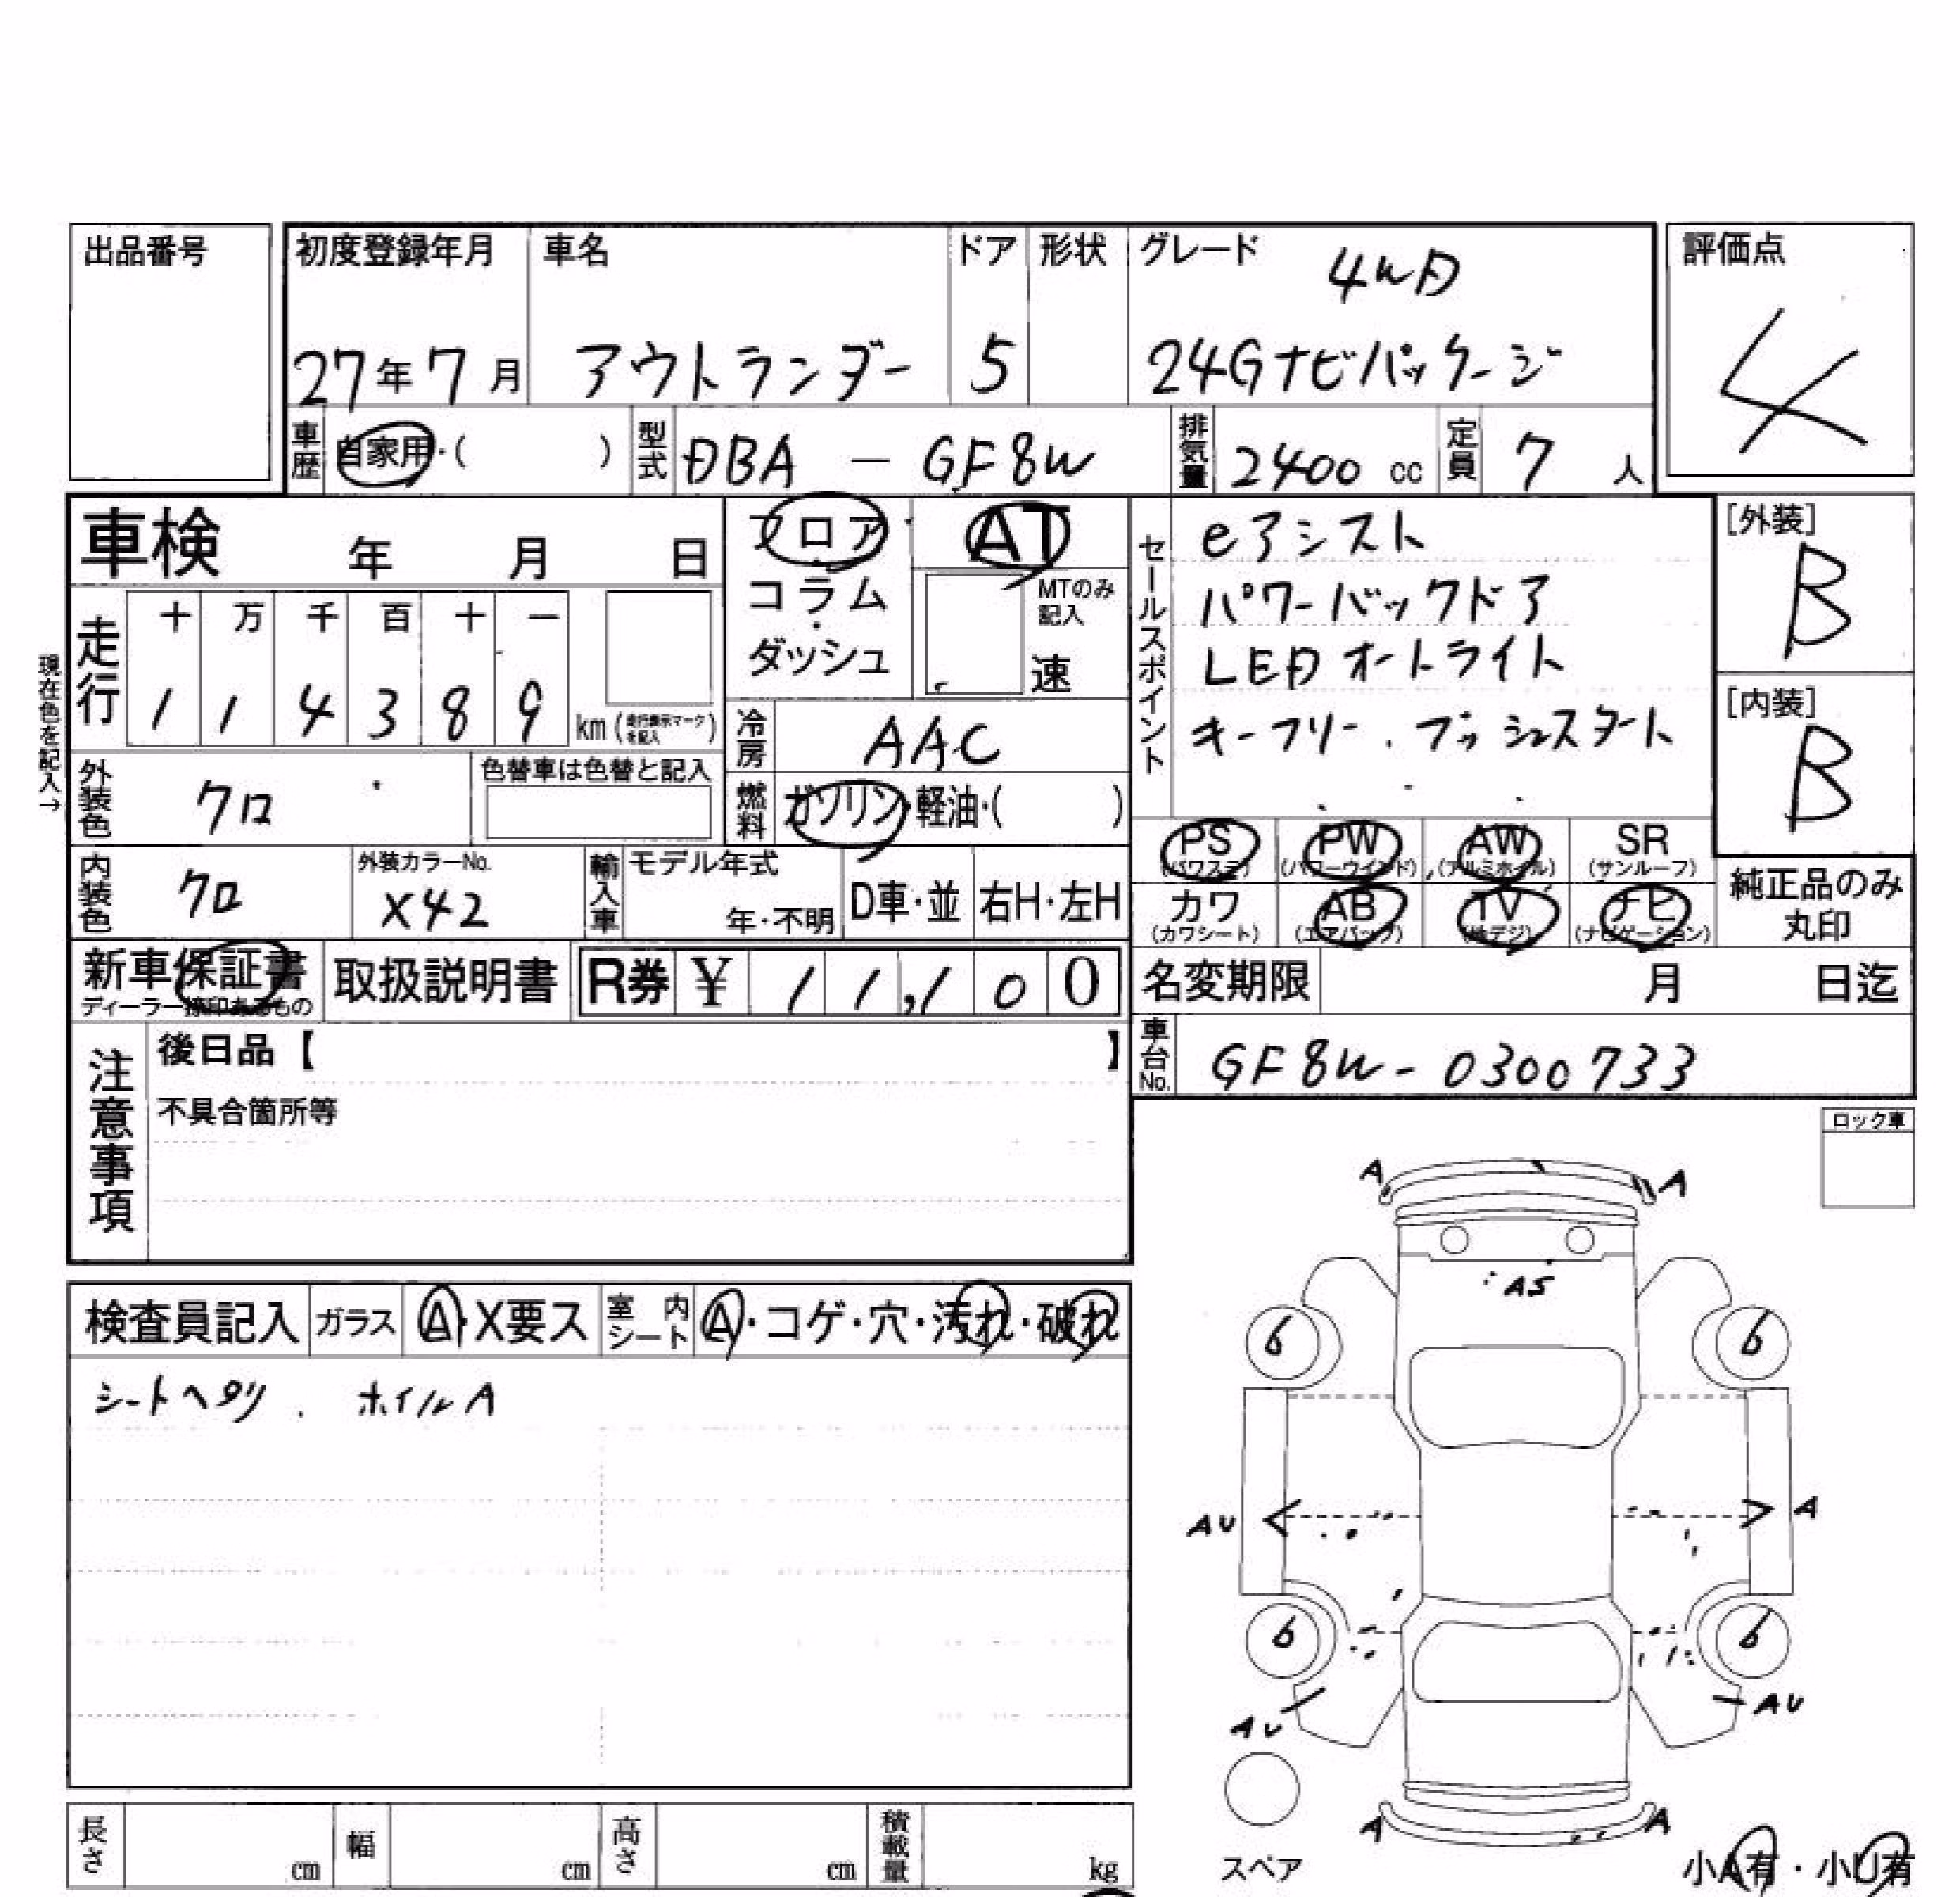 出品番号
初度登録年月 車名 ドア 形状 グレード 4WD
27年7月 アウトランダー 5 24Gナビパッケージ
評価点
4
車歴 自家用・( ) 型式 DBA - GF8W 排気量 2400 cc 定員 7 人
車検 年 月 日
フロア・コラム・ダッシュ
AT
MTのみ記入
速
セールスポイント
eアシスト
パワーバックドア
LEDオートライト
キーフリー、プッシュスタート
[外装]
B
[内装]
B
現在色を記入→
走行 十 万 千 百 十 一
1 1 4 3 8 9 km (走行表示マークを記入)
冷房 AAC
外装色 クロ 色替車は色替と記入
燃料 ガソリン・軽油・( )
PS (パワステ) PW (パワーウインド) AW (アルミホイル) SR (サンルーフ)
カワ (カワシート) AB (エアバッグ) TV (地デジ) ナビ (ナビゲーション)
純正品のみ丸印
内装色 クロ 外装カラーNo. X42 輸入車 モデル年式 年・不明 D車・並 右H・左H
新車保証書 ディーラー捺印あるもの 取扱説明書 R券 ¥ 11,100
名変期限 月 日迄
車台No. GF8W-0300733
注意事項
後日品【 】
不具合箇所等
ロック車
検査員記入 ガラス A・X要ス 室内シート A・コゲ・穴・汚れ・破れ
シートヘタリ、ホイルA
A A
AS
6 6
AU A
6 6
AU AU
A A
スペア
小A有・小U有
長さ cm 幅 cm 高さ cm 積載量 kg